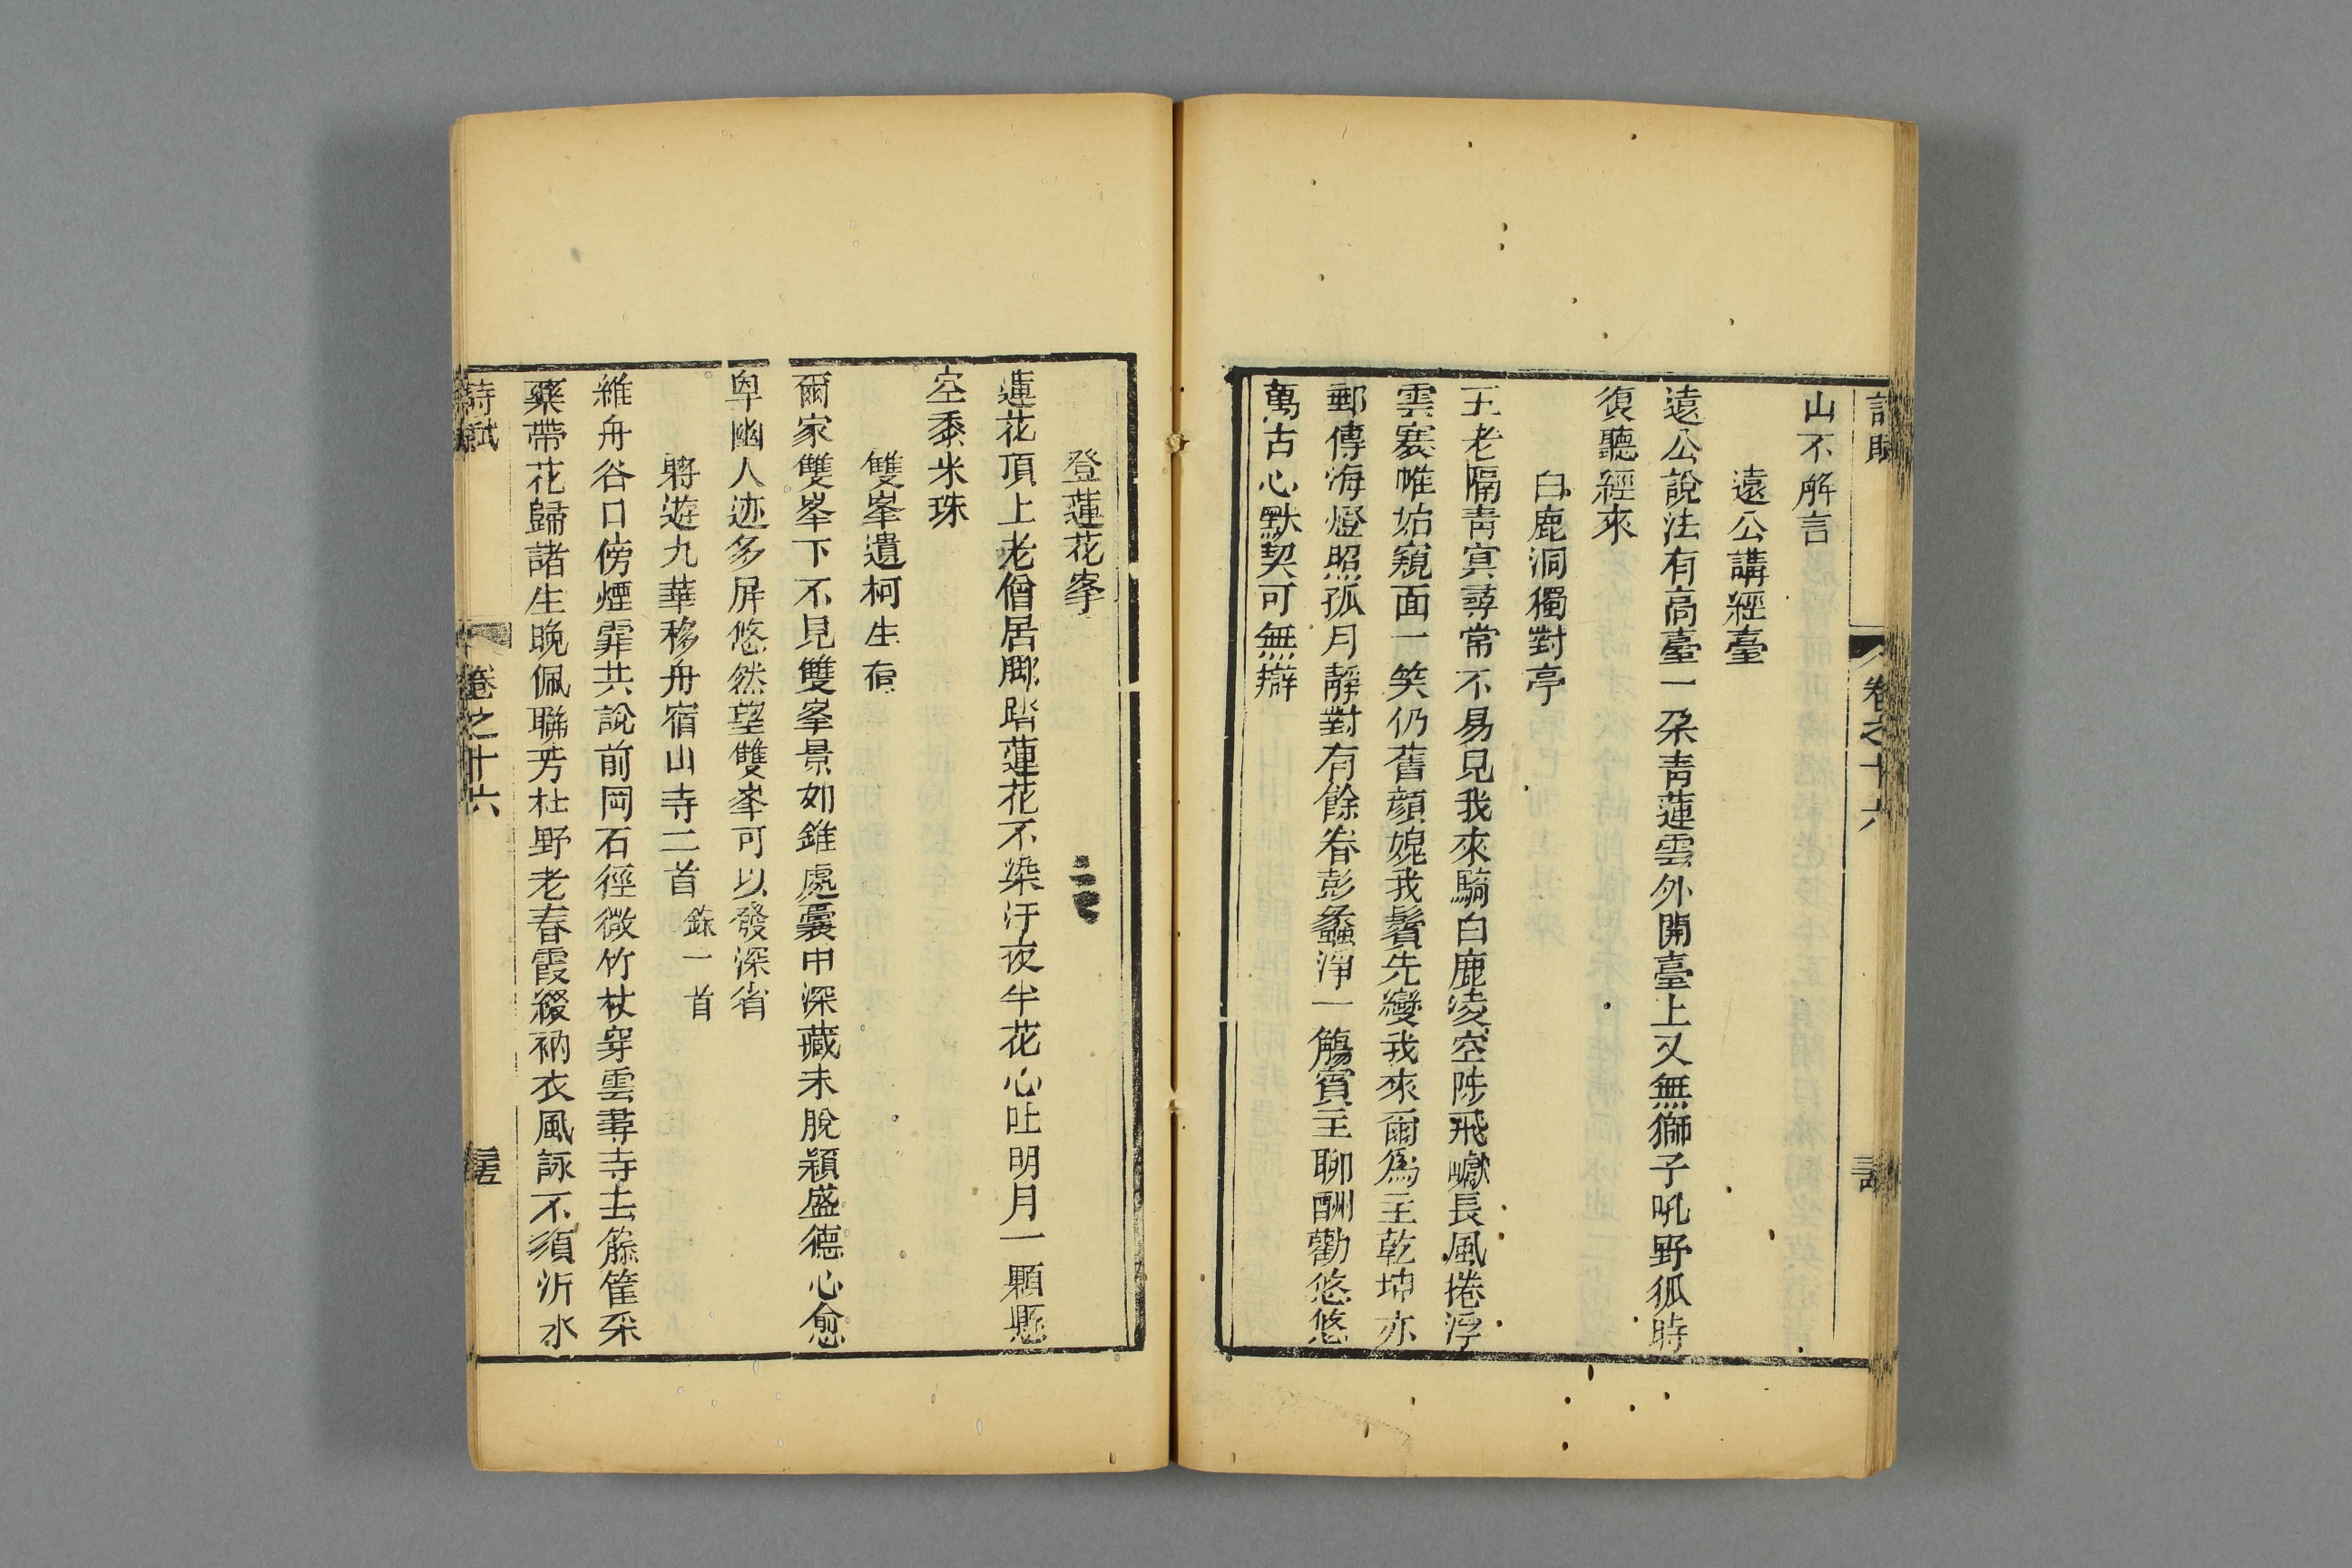 卷之十六
山不解言
遠公講經臺
遠公說法有高臺一朶靑蓮雲外開臺上又無獅子吼野狐時
復聽經來
白鹿洞獨對亭
五老隔靑冥尋常不易見我來騎白鹿凌空陟飛巘長風捲浮
雲褰帷始窺面一笑仍舊顔媿我鬢先變我來爾爲主乾坤亦
郵傳海燈照孤月靜對有餘眷彭蠡浮一觴賓主聊酬勸悠悠
萬古心默契可無辯
登蓮花峯
蓮花頂上老僧居脚踏蓮花不染汙夜半花心吐明月一顆懸
空黍米珠
雙峯遺柯生喬
爾家雙峯下不見雙峯景如錐處囊中深藏未脫穎盛德心愈
卑幽人迹多屏悠然望雙峯可以發深省
將遊九華移舟宿山寺二首 錄一首
維舟谷口傍煙霏共說前岡石徑微竹杖穿雲尋寺去籐筐采
藥帶花歸諸生晚佩聯芳杜野老春霞綴衲衣風詠不須沂水
詩賦
卷之十六